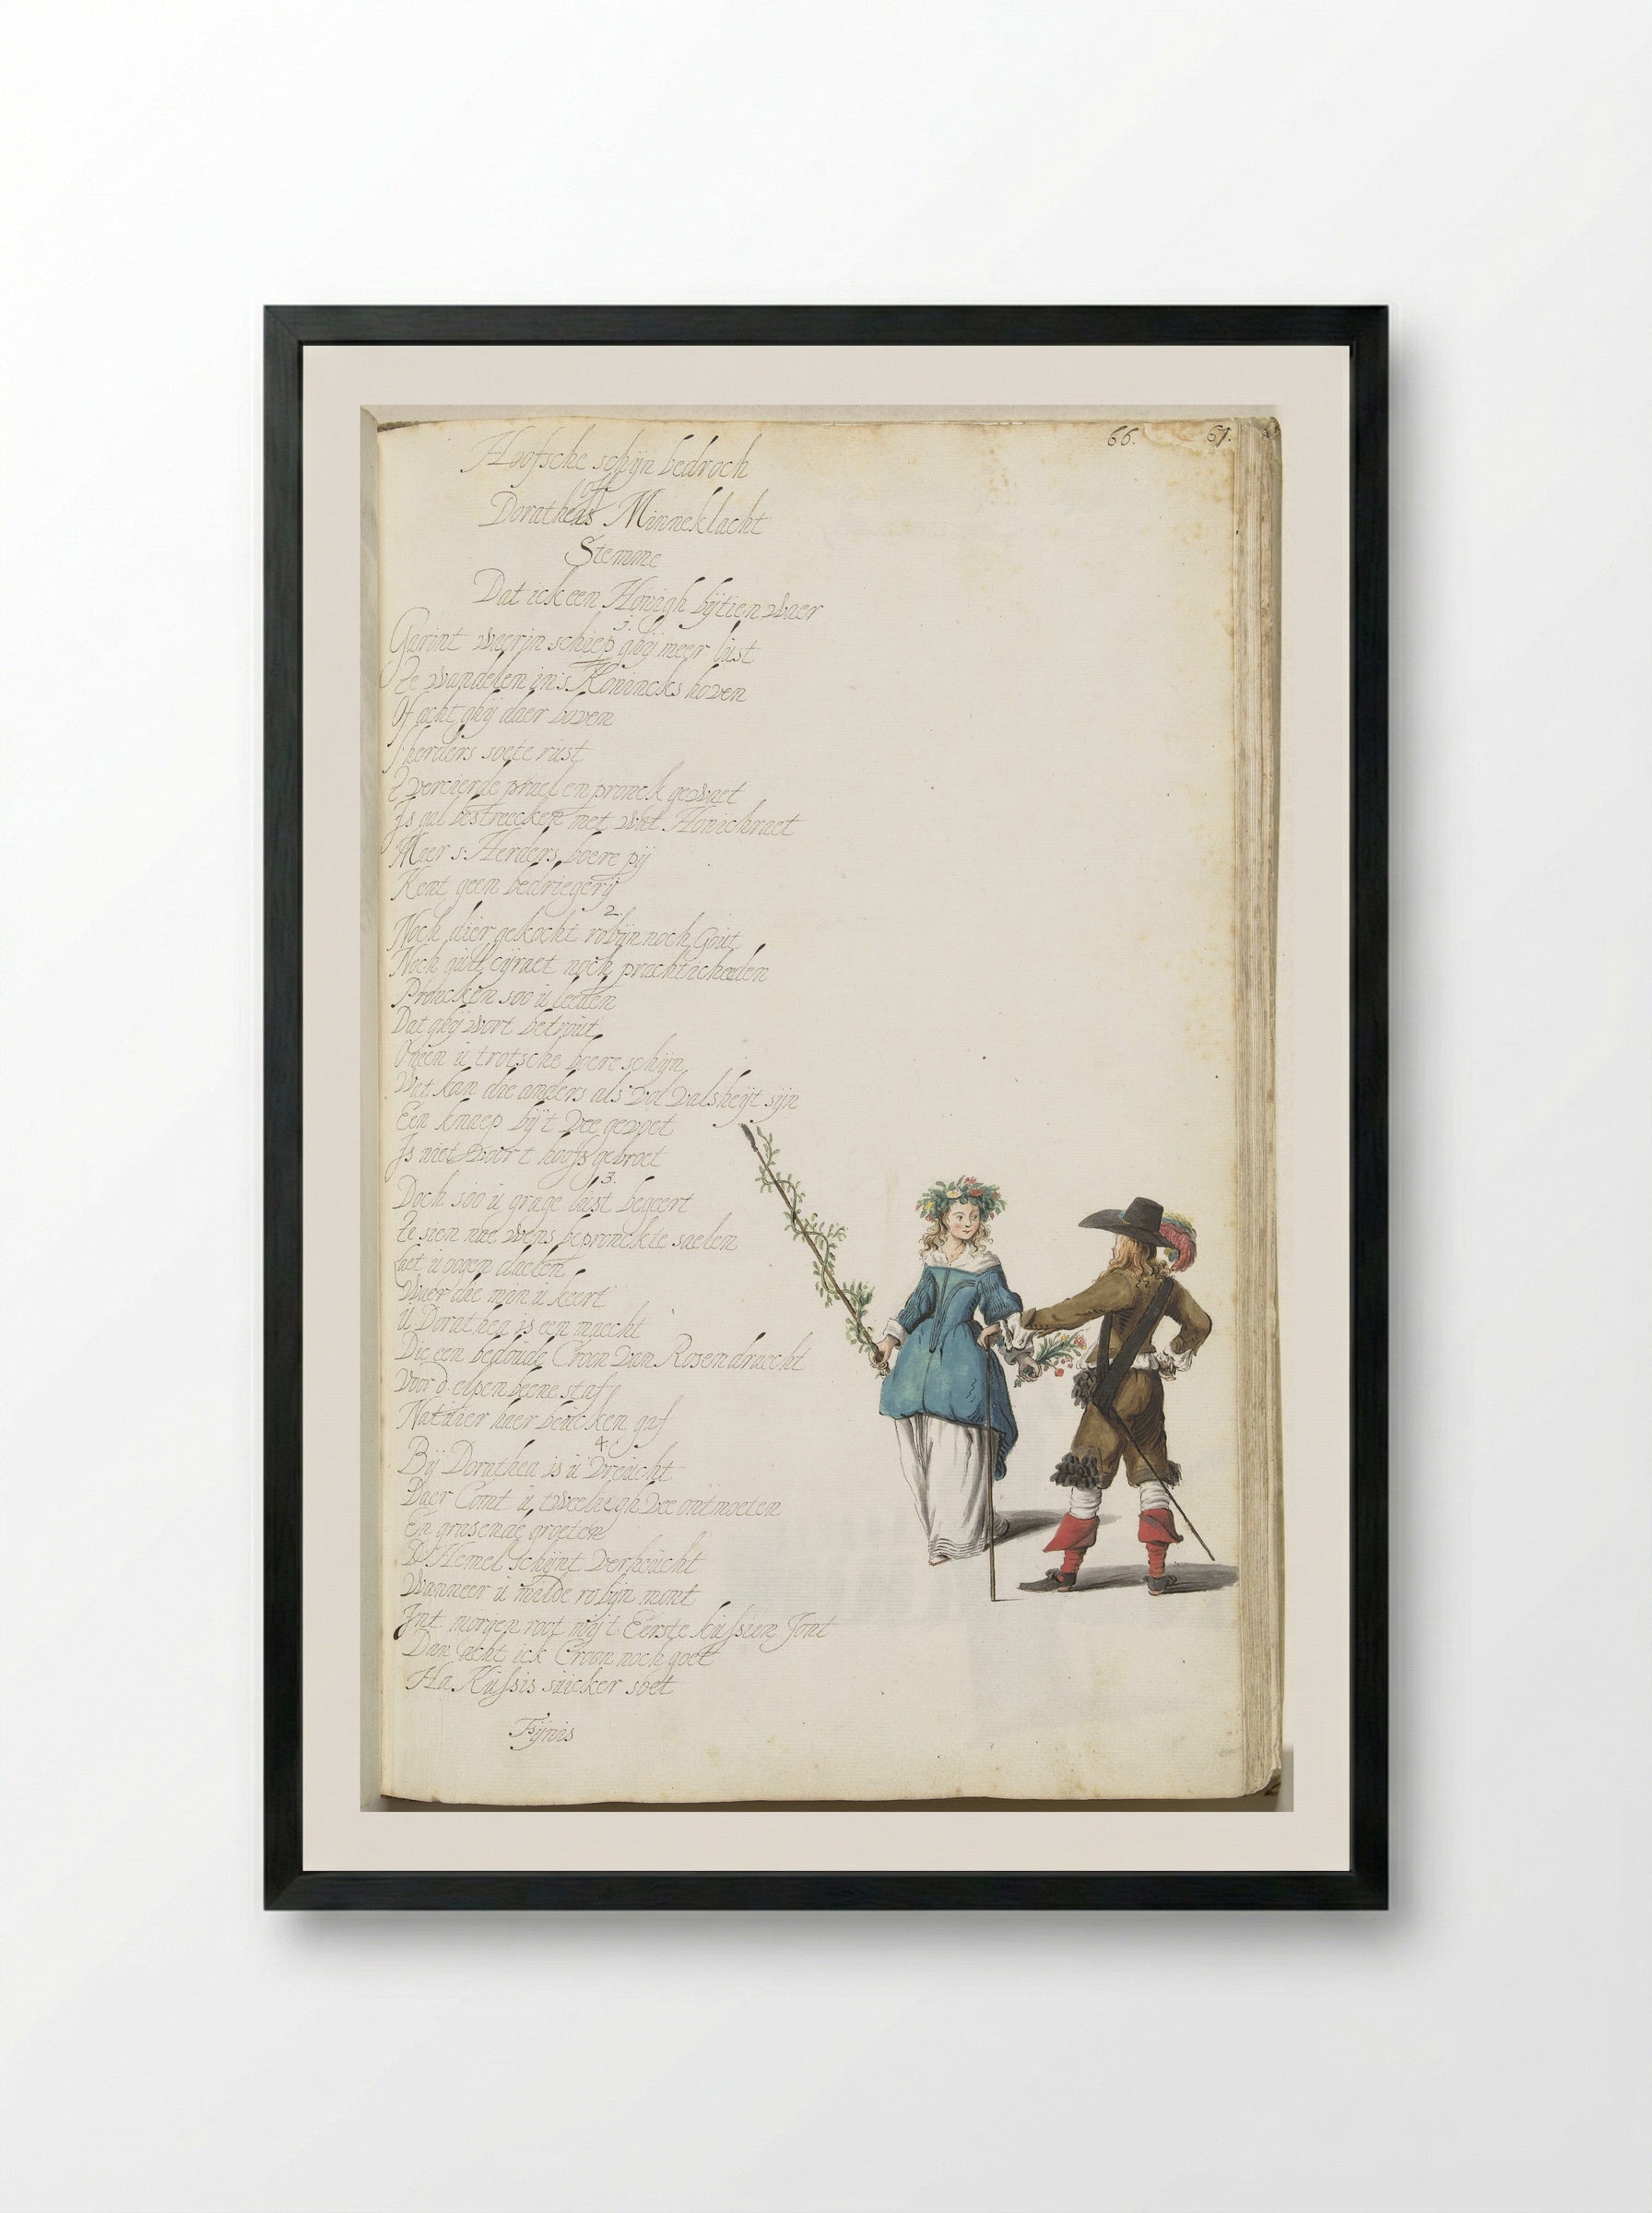 66. 67.
Hoofsche schijn bedroch
off
Doratheas Minneklacht
Stemme
Dat ick een Honigh bijtien waer
Garint waerin schiep ghij meer lust
Te wandelen in's Konincks hoven
Of acht ghij daer boven
s'herders soete rust
t vercierde prael en pronck gewaet
Is gal bestreecken met wat Honichraet
Maer s: Herders boere pij
Kent geen bedriegerij
2.
Noch dier gekocht robijn noch Gout
Noch gult cijraet noch prachticheden
Proncken soo u leeden
Dat ghij wort betrout
Oneen u trotsche boere schijn
Wat kan die anders als vol valsheijt sijn
Een knaep bij't vee gevoet
Is niet voor t hoofs gebroet
3.
Doch soo u grage lust begeert
Te sien nae wens bepronckte saelen
Laet u oogen daelen
Waer die min u keert
U Dorathea is een maecht
Die een bedoude Croon van Rosen draecht
Voor d. elpenbeene staf
Natuer haer beucken gaf
4.
Bij Dorathea is u vreucht
Daer Comt u tweeliegh vee ontmoeten
En grasende groeten
De Hemel schijnt verheucht
Wanneer u malde robijn mont
Int morgen root mijt Eerste kussien Jont
Dan acht ick Croon noch goet
Ha Kussis suicker soet
Fijnis